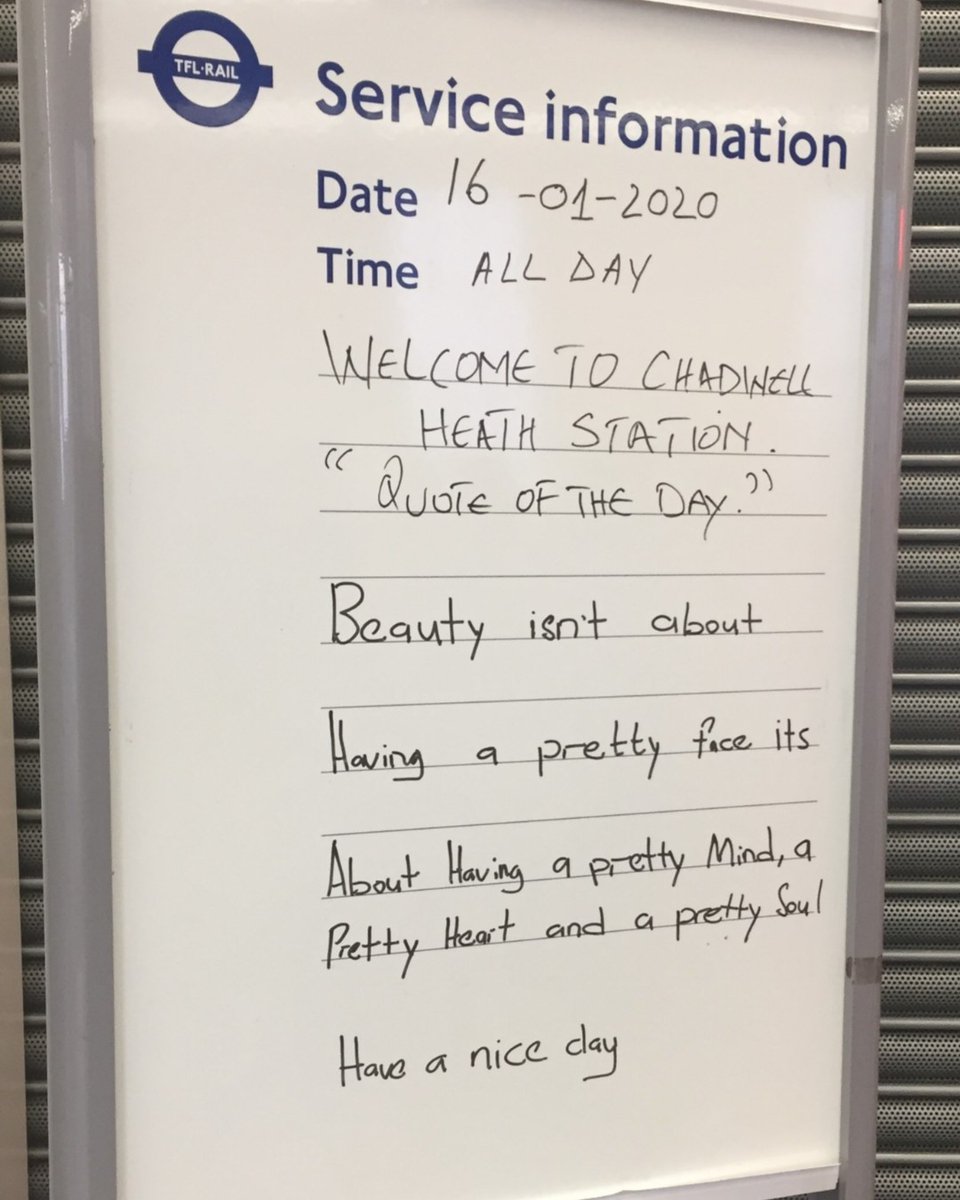 TFL·RAIL
Service information
Date 16 -01-2020
Time ALL DAY
WELCOME TO CHADWELL
HEATH STATION.
"QUOTE OF THE DAY."
Beauty isn't about
Having a pretty face its
About Having a pretty Mind, a
Pretty Heart and a pretty Soul
Have a nice day